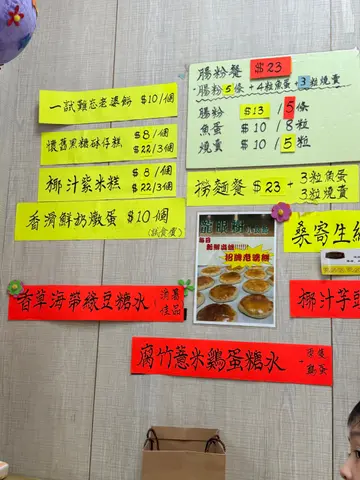 一試難忘老婆餅 $10/個
懷舊黑糖砵仔糕 $8/個
$22/3個
椰汁紫米糕 $8/個
$22/3個
香滑鮮奶燉蛋 $10個
腸粉餐 $23
腸粉5條+4粒魚蛋+3粒燒賣
腸粉 $13 /5條
魚蛋 $10 /8粒
燒賣 $10 /5粒
撈麵餐 $23 + 3粒魚蛋
3粒燒賣
桑寄生
招牌老婆餅
香草海帶綠豆糖水 消暑
佳品
椰汁芋頭
腐竹薏米鷄蛋糖水